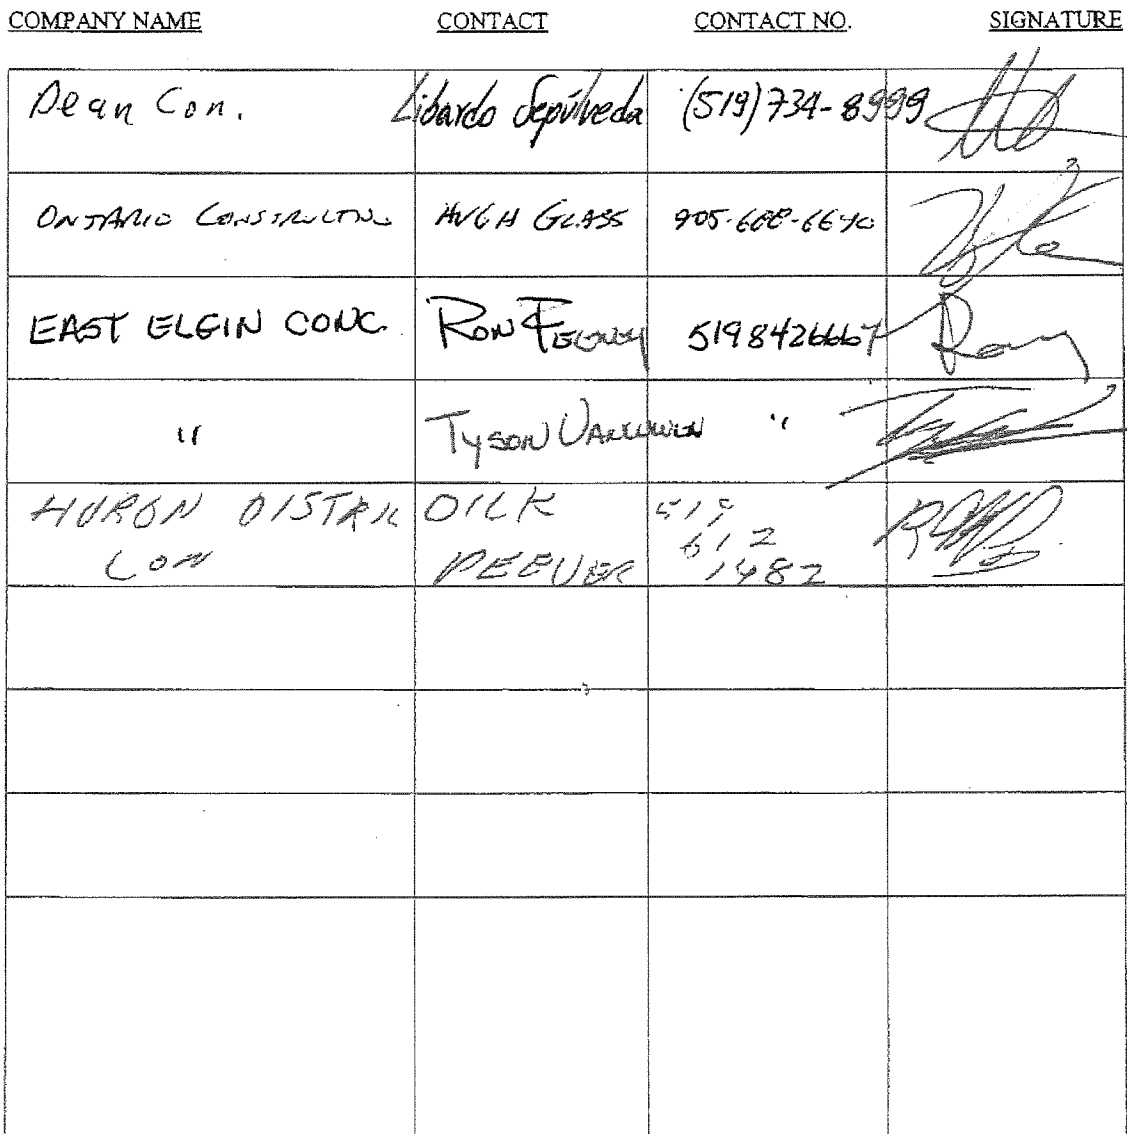 COMPANY NAME CONTACT CONTACT NO. SIGNATURE
Dean Con. Libardo Sepúlveda (519)734-8999
ONTARIO CONSTRUCTING HUGH GLASS 905-688-6670
EAST ELGIN CONC. RON 5198426667
" TYSON "
HURON DISTRIC DILK 519
CON PEEVER 612
1482